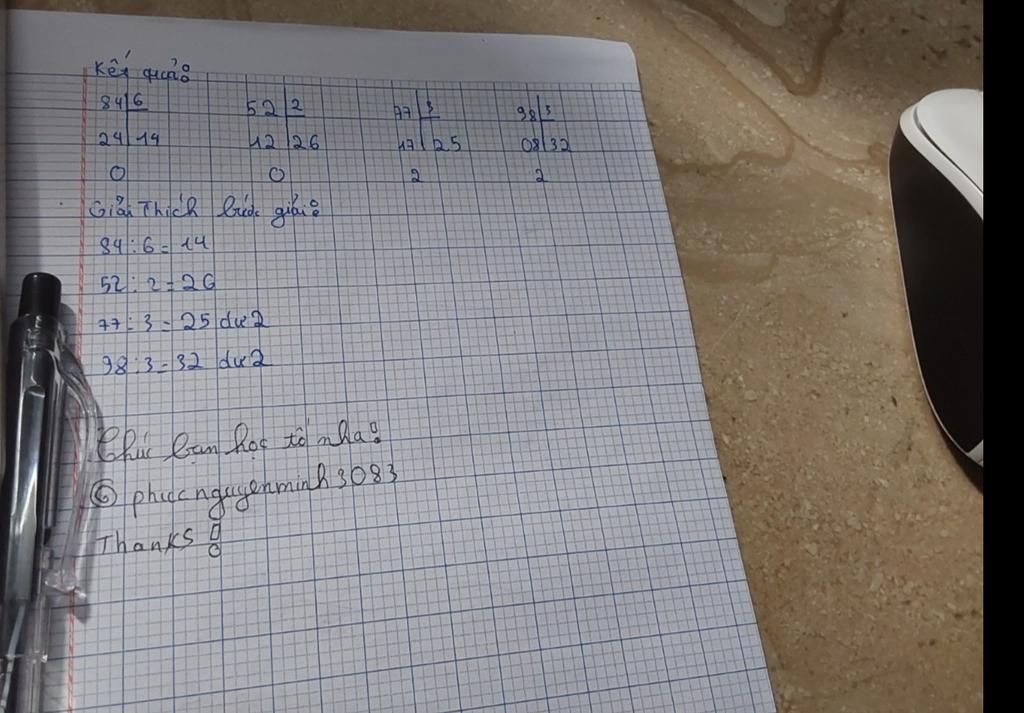 Kết quả:
84 6 52 2 77 3 98 3
24 14 12 26 17 25 08 32
0 0 2 2
Giải Thích bước giải:
84 : 6 = 14
52 : 2 = 26
77 : 3 = 25 dư 2
98 : 3 = 32 dư 2
Chúc bạn học tố nha!
© phucnguyenminh3083
Thanks !